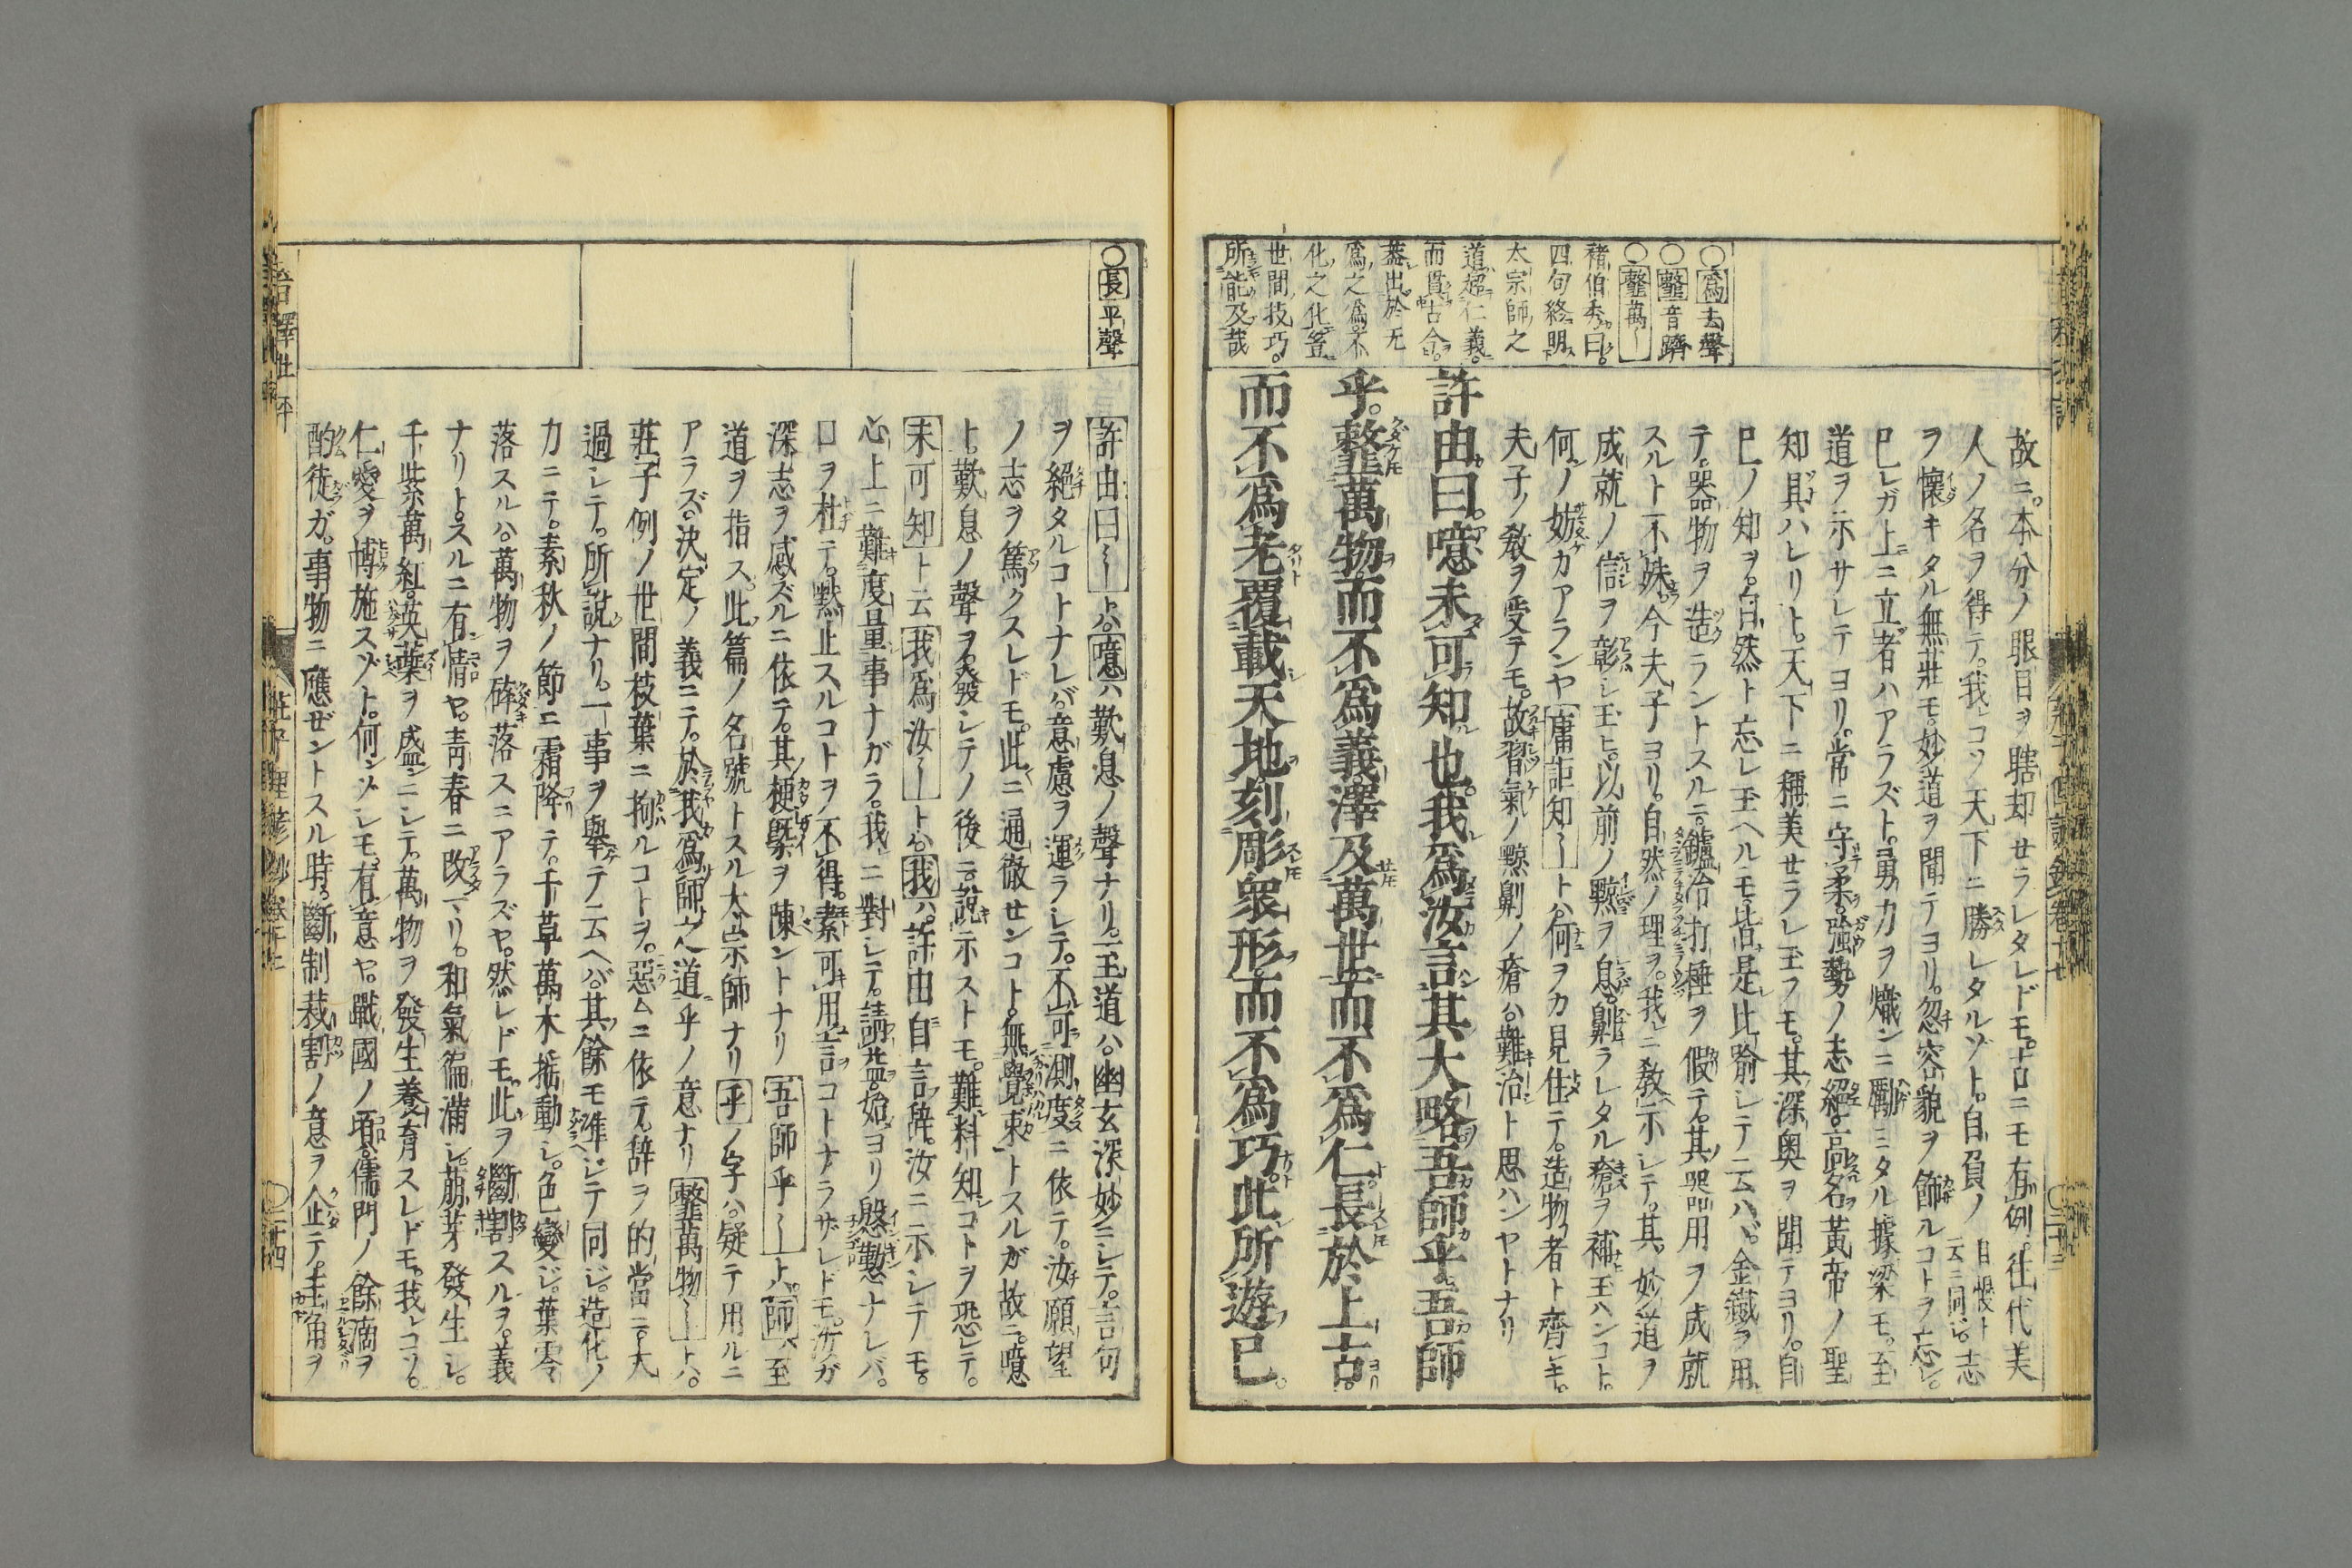 〇爲去聲
〇䪠音躋
〇䪠萬〡
褚伯秀曰。
四句終明
大宗師之
道超仁義。
而貫古今。
蓋出於无
爲之爲不
化之化豈
世間技巧。
所能及哉
故ニ。本分ノ眼目ヲ瞎却セラレタレドモ。
人ノ名ヲ得テ。我コソ天下ニ勝レタルゾト。自負ノ
ヲ懷キタル無莊モ。妙道ヲ聞テヨリ。忽容貌ヲ飾ルコトヲ忘レ。
巳レガ上ニ立者ハアラズト。勇力ヲ熾ンニ勵ミタル據梁モ。至
道ヲ示サレテヨリ。常ニ守柔。強勢ノ志絕。高名黃帝ノ聖
知具ハレリト。天下ニ稱美セラレ玉フモ。其深奥ヲ聞テヨリ。自
巳ノ知ヲ。自然ト忘レ玉ヘルモ。皆是比喩レテ云ハヾ。金鐵ヲ用
テ。器物ヲ造ラントスルニ。鑪冶打捶ヲ假テ。其器用ヲ成就
スルト不殊。今夫子ヨリ。自然ノ理ヲ。我ニ敎示レテ。其妙道ヲ
成就ノ信ヲ彰レ玉ヒ。以前ノ黥ヲ息。劓ラレタル瘡ヲ補玉ハンコト。
何ノ妨カアランヤ庸詎知〡トハ。何ヲカ見住テ。造物者ト齊レキ。
夫子ノ敎ヲ受テモ。故習氣ノ黥劓ノ瘡ハ。難治ト思ハンヤトナリ
許由曰。噫未可知也。我爲汝言其大略。吾師乎吾師
乎。䪠萬物。而不爲義。澤及萬世。而不爲仁。長於上古。
而不爲老。覆載天地。刻彫衆形。而不爲巧。此所遊已。
〇長平聲
許由曰〡トハ。噫ハ歎息ノ聲ナリ。至道ハ。幽玄深妙ニレテ。言句
ヲ絕タルコトナレバ。意慮ヲ運ラレテ。不可測度ニ依テ。汝願望
ノ志ヲ篤クスレドモ。此ニ通徹センコト。無覺束トスルガ故ニ。噫
ト。歎息ノ聲ヲ發レテノ後ニ。說示ストモ。難料知コトヲ恐レテ。
未可知ト云我爲汝〡トハ。我ハ。許由自言辞。汝ニ示レテモ。
心上ニ難度量事ナガラ。我ニ對レテ。請益。始ヨリ慇懃ナレバ。
口ヲ杜テ。黙止スルコトヲ不得。素可用言コトナラザレドモ。汝ガ
深志ヲ感ズルニ依テ。其梗槩ヲ陳ントナリ吾師乎〡トハ。師ハ至
道ヲ指ス。此篇ノ名號トスル大宗師ナリ乎ノ字ハ。疑テ用ルニ
アラズ。決定ノ義ニテ。於我爲師之道乎ノ意ナリ䪠萬物〡トハ。
莊子例ノ世間枝葉ニ拘ルコトヲ。惡ムニ依テ。辞ヲ的當ニ。大
過レテ。所說ナリ。一事ヲ舉テ云ヘバ。其餘モ準ジテ同ジ。造化ノ
力ニテ。素秋ノ節ニ霜降テ。千草萬木揺動レ。色變ジ。葉零
落スルハ。萬物ヲ碎落スニアラズヤ。然レドモ。此ヲ斷割スルヲ。義
ナリト。スルニ有情ヤ。青春ニ改マリ。和氣徧滿レ。萠芽發生レ。
千紫萬紅。英葉ヲ盛ンニレテ。萬物ヲ發生養育スレドモ。我レコソ。
仁愛ヲ博施スゾト。何ゾレモ。有意ヤ。戰國ノ頃。儒門ノ餘滴ヲ
酌徒ガ。事物ニ應ゼントスル時。斷制裁割ノ意ヲ企テ。圭角ヲ